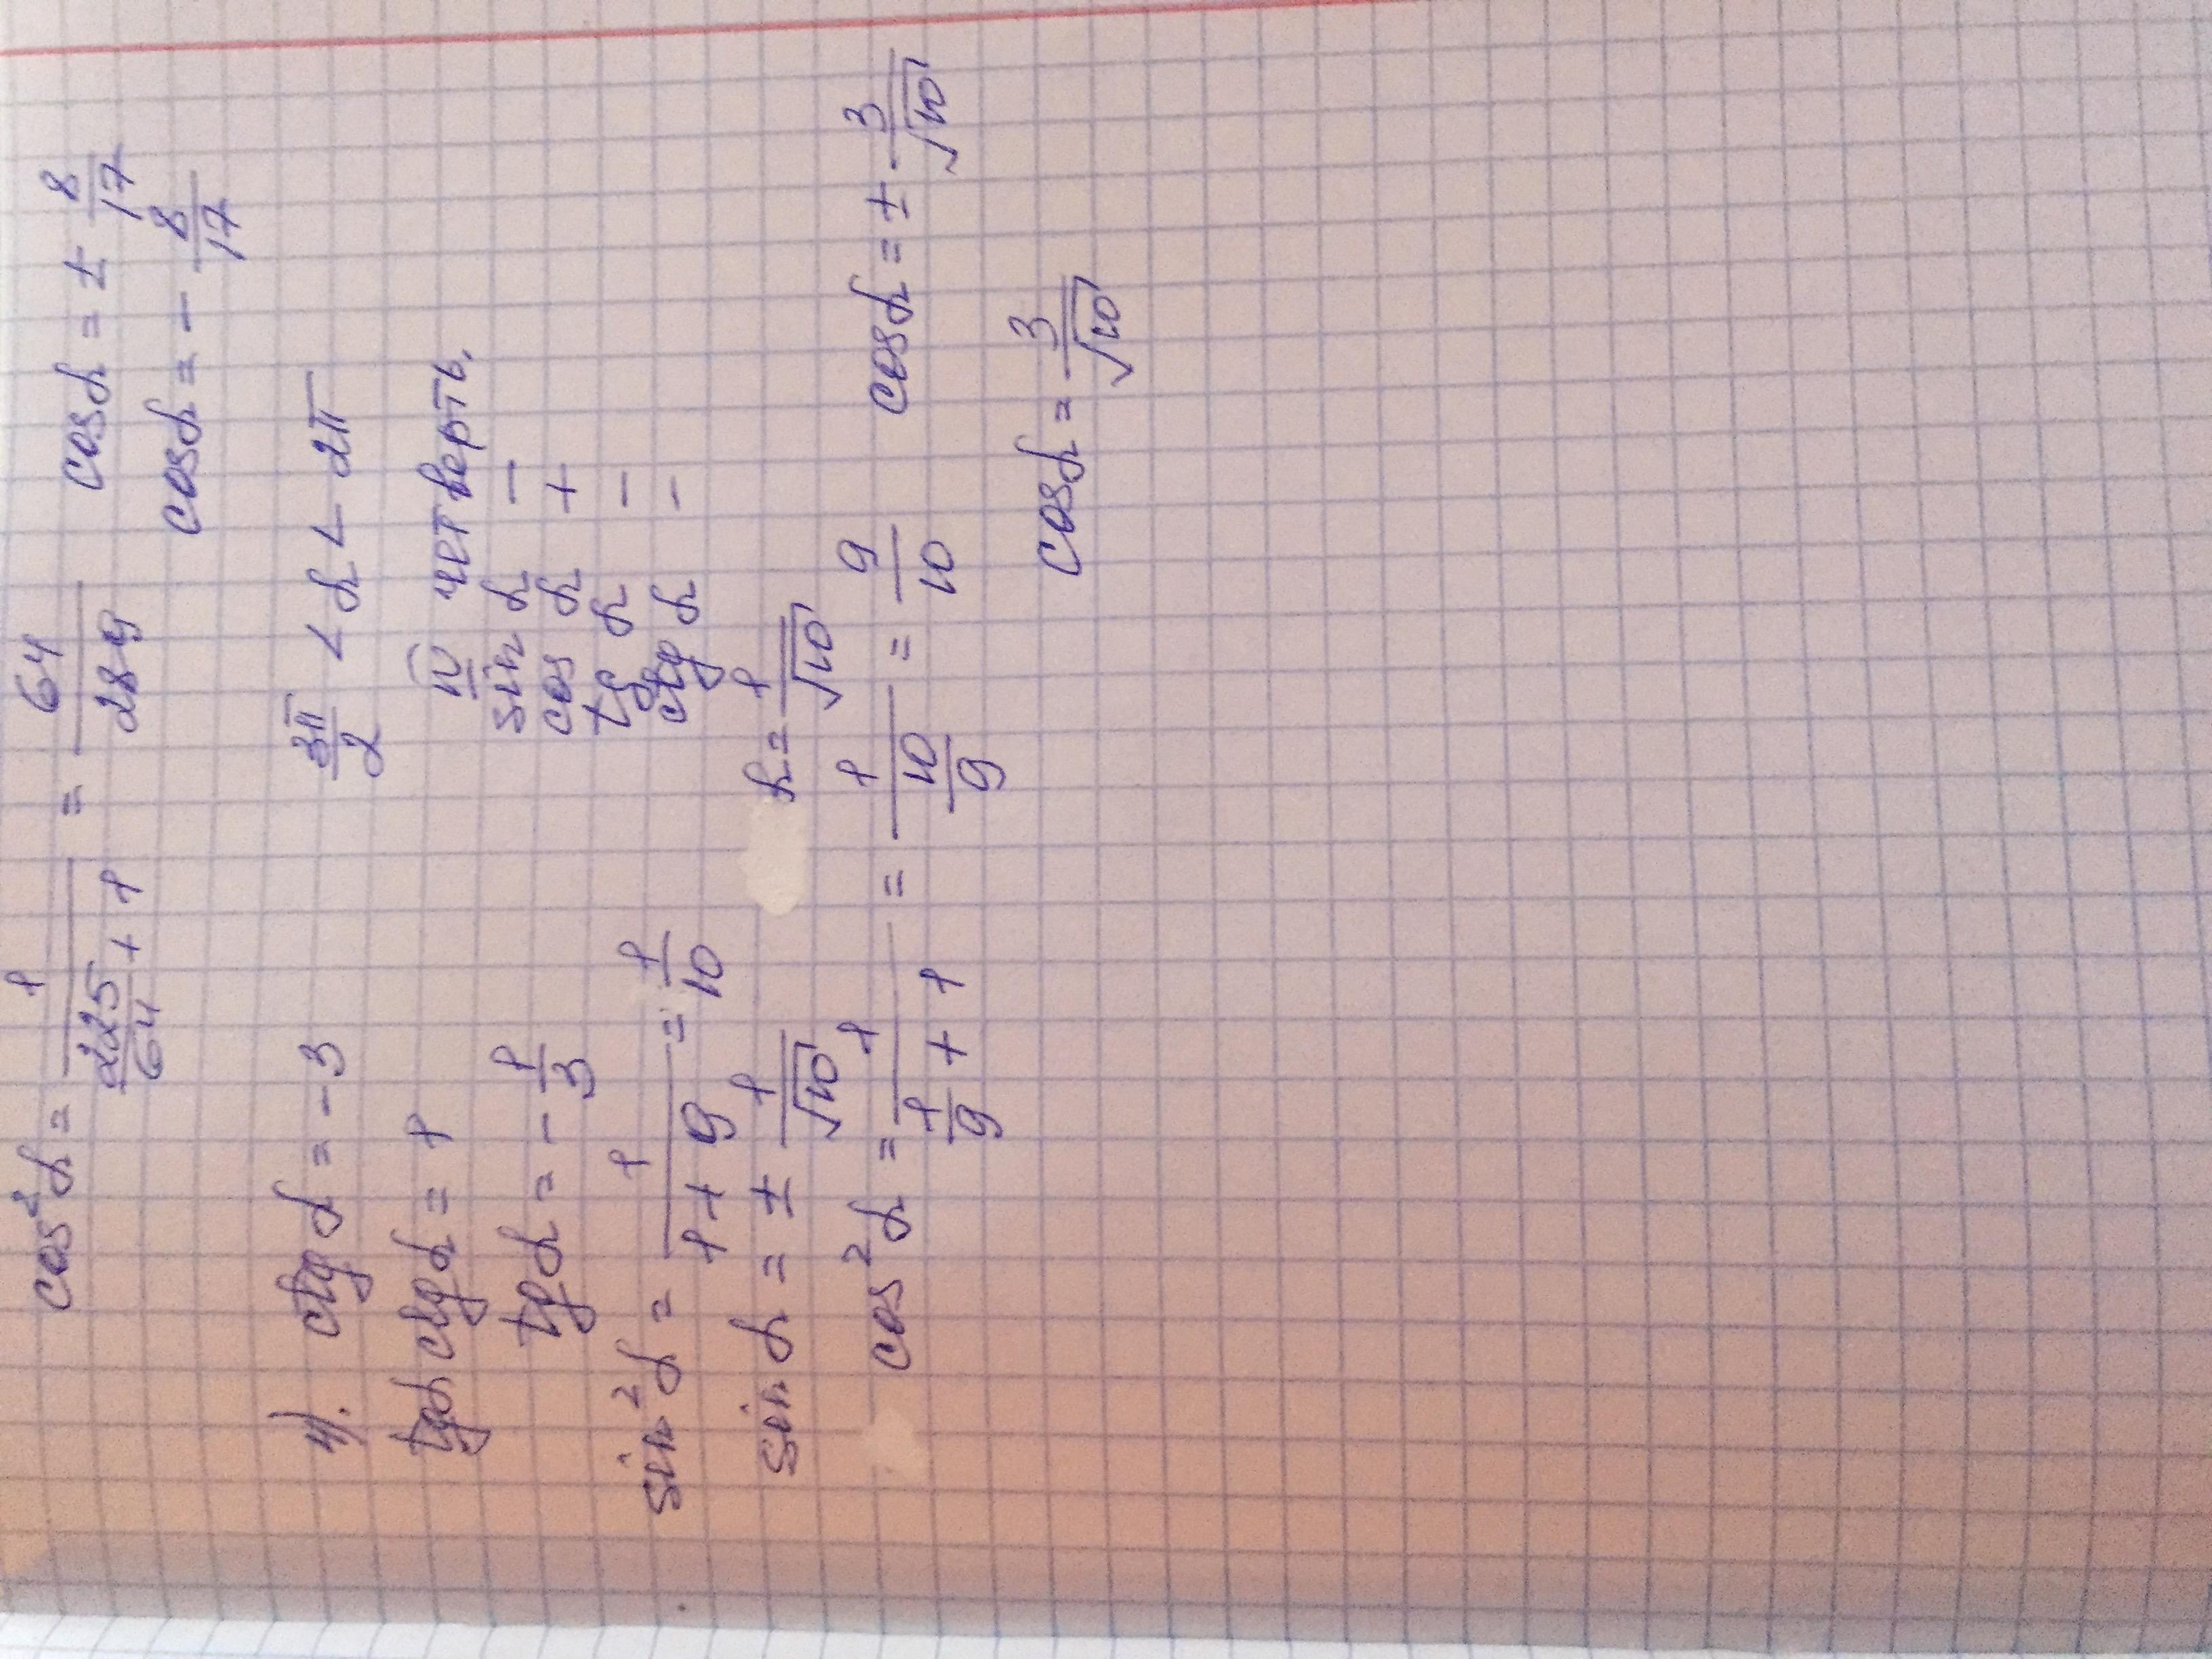 cos²α = 1/(225/64 + 1) = 64/289 cosα = ± 8/17
cosα = - 8/17
4). ctgα = -3 3π/2 < α < 2π
tgα ctgα = 1 IV четверть.
tgα = - 1/3 sin α -
cos α +
tg α -
ctg α -
sin²α = 1/(1 + 9) = 1/10
sin α = ± 1/√10 α = 1/√10
cos²α = 1/(1/9 + 1) = 1/(10/9) = 9/10 cosα = ± 3/√10
cosα = 3/√10